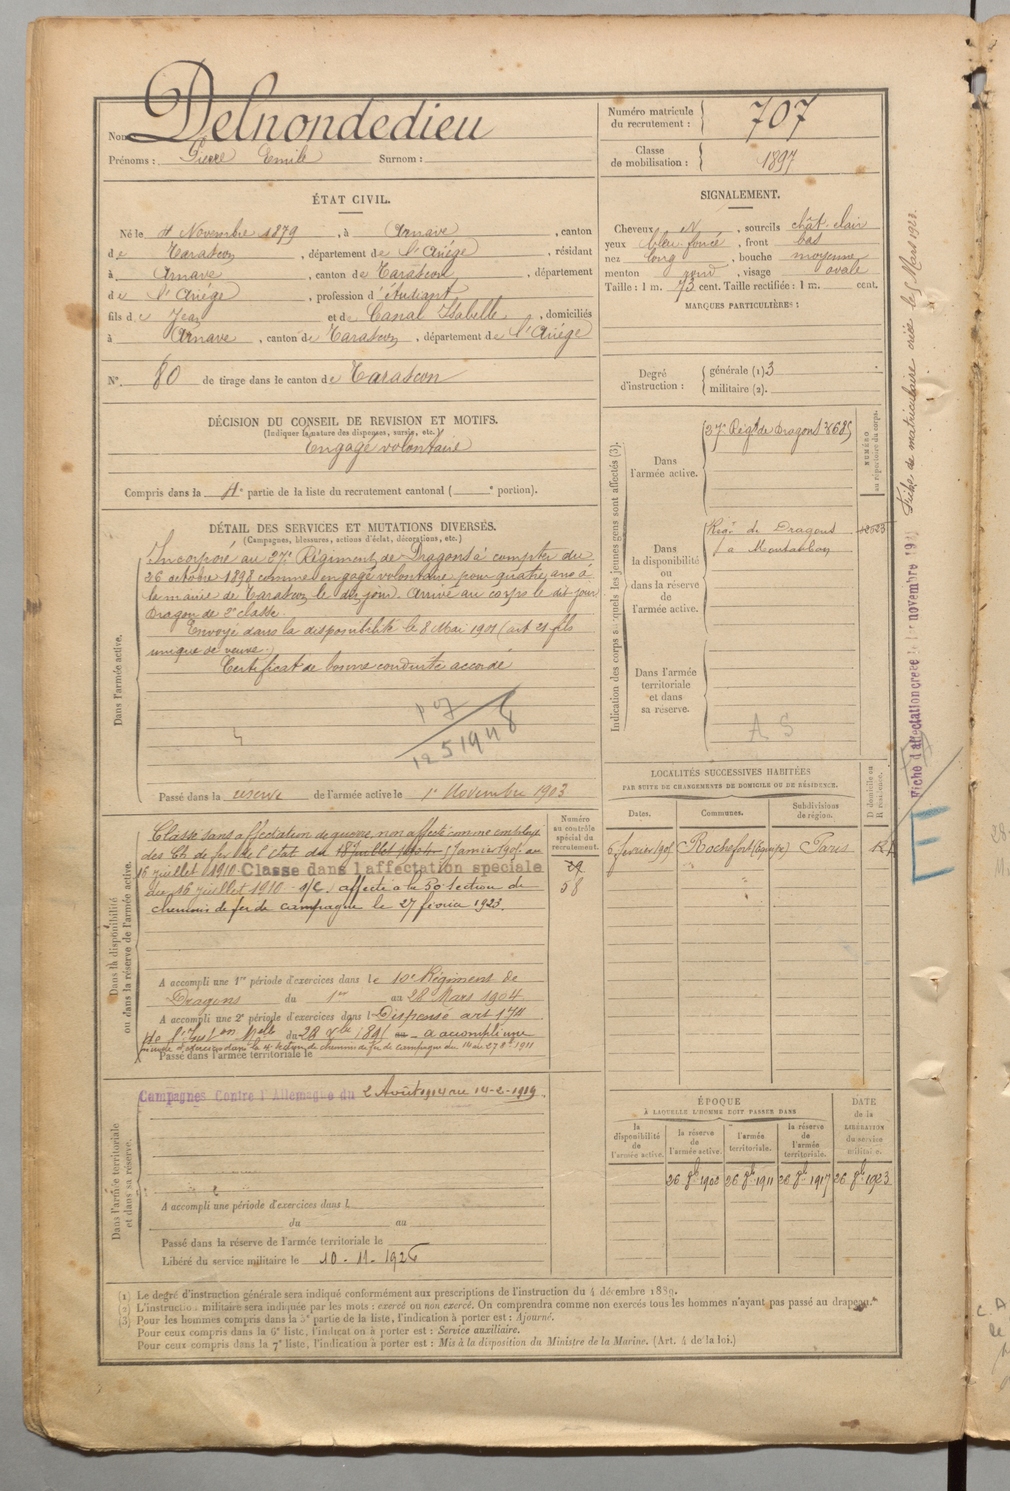 Nom : Delnondedieu
Prénoms : Pierre Emile Surnom :
Numéro matricule du recrutement : 707
Classe de mobilisation : 1897
ÉTAT CIVIL.
Né le 4 Novembre 1879, à Arnave, canton
de Tarascon, département de l'Ariége, résidant
à Arnave, canton de Tarascon, département
de l'Ariége, profession d'étudiant
fils de Jean et de Canal Isabelle, domiciliés
à Arnave, canton de Tarascon, département de l'Ariége
N° 80 de tirage dans le canton de Tarascon
SIGNALEMENT.
Cheveux N, sourcils chât. clair
yeux bleu foncé, front bas
nez long, bouche moyenne
menton rond, visage ovale
Taille : 1 m. 73 cent. Taille rectifiée : 1 m. cent.
MARQUES PARTICULIÈRES :
Degré d'instruction :
générale (1) 3
militaire (2).
DÉCISION DU CONSEIL DE REVISION ET MOTIFS.
(Indiquer la nature des dispenses, sursis, etc.)
Engagé volontaire
Compris dans la 4e partie de la liste du recrutement cantonal ( e portion).
DÉTAIL DES SERVICES ET MUTATIONS DIVERSES.
(Campagnes, blessures, actions d'éclat, décorations, etc.)
Dans l'armée active.
Incorporé au 37e Régiment de Dragons à compter du
26 octobre 1898 comme engagé volontaire pour quatre ans à
la mairie de Tarascon le dit jour. Arrivé au corps le dit jour
Dragon de 2e classe.
Envoyé dans la disponibilité le 8 Mai 1901 (art 21 fils
unique de veuve.)
Certificat de bonne conduite accordé
Passé dans la réserve de l'armée active le 1er Novembre 1903
Indication des corps auxquels les jeunes gens sont affectés (3).
NUMÉRO au répertoire du corps.
Dans l'armée active.
37e Régt de Dragons
Dans la disponibilité ou dans la réserve de l'armée active.
Régt de Dragons
à Montauban
Dans l'armée territoriale et dans sa réserve.
A S
LOCALITÉS SUCCESSIVES HABITÉES
PAR SUITE DE CHANGEMENTS DE DOMICILE OU DE RÉSIDENCE.
Dates. Communes. Subdivisions de région. D domicile ou R résidence.
6 février 1905 Rochefort Paris
Dans la disponibilité ou dans la réserve de l'armée active.
Numéro au contrôle spécial du recrutement.
58
Classé sans affectation de guerre, non affecté comme employé
des Ch. de fer de l'Etat du 18 Juillet 1 Janvier 1905 au
16 juillet 1910. Classé dans l'affectation spéciale
du 16 juillet 1910. affecté à la 5e Section de
chemins de fer de campagne le 27 février 1923.
A accompli une 1re période d'exercices dans le 10e Régiment de
Dragons du 1er au 28 Mars 1904
A accompli une 2e période d'exercices dans l Dispensé art
a accompli une
période d'exercices dans la 4e Section de chemins de fer de campagne du 14 au 27 1911
Passé dans l'armée territoriale le
Dans l'armée territoriale et dans sa réserve.
Campagnes Contre l'Allemagne du 2 Août 1914 au 14-2-1919.
A accompli une période d'exercices dans l
du au
Passé dans la réserve de l'armée territoriale le
Libéré du service militaire le 10-11-1926
ÉPOQUE
À LAQUELLE L'HOMME DOIT PASSER DANS
la disponibilité de l'armée active. la réserve de l'armée active. l'armée territoriale. la réserve de l'armée territoriale.
DATE de la LIBÉRATION du service militaire.
26 8bre 1911 26 8bre 1917 26 8bre 1923
(1) Le degré d'instruction générale sera indiqué conformément aux prescriptions de l'instruction du 4 décembre 1889.
(2) L'instruction militaire sera indiquée par les mots : exercé ou non exercé. On comprendra comme non exercés tous les hommes n'ayant pas passé au drapeau.
(3) Pour les hommes compris dans la 5e partie de la liste, l'indication à porter est : Ajourné.
Pour ceux compris dans la 6e liste, l'indication à porter est : Service auxiliaire.
Pour ceux compris dans la 7e liste, l'indication à porter est : Mis à la disposition du Ministre de la Marine. (Art. 4 de la loi.)
Fiche d'affectation créée le 1er novembre
Fiche de matriculaire créée le Mars 1928.